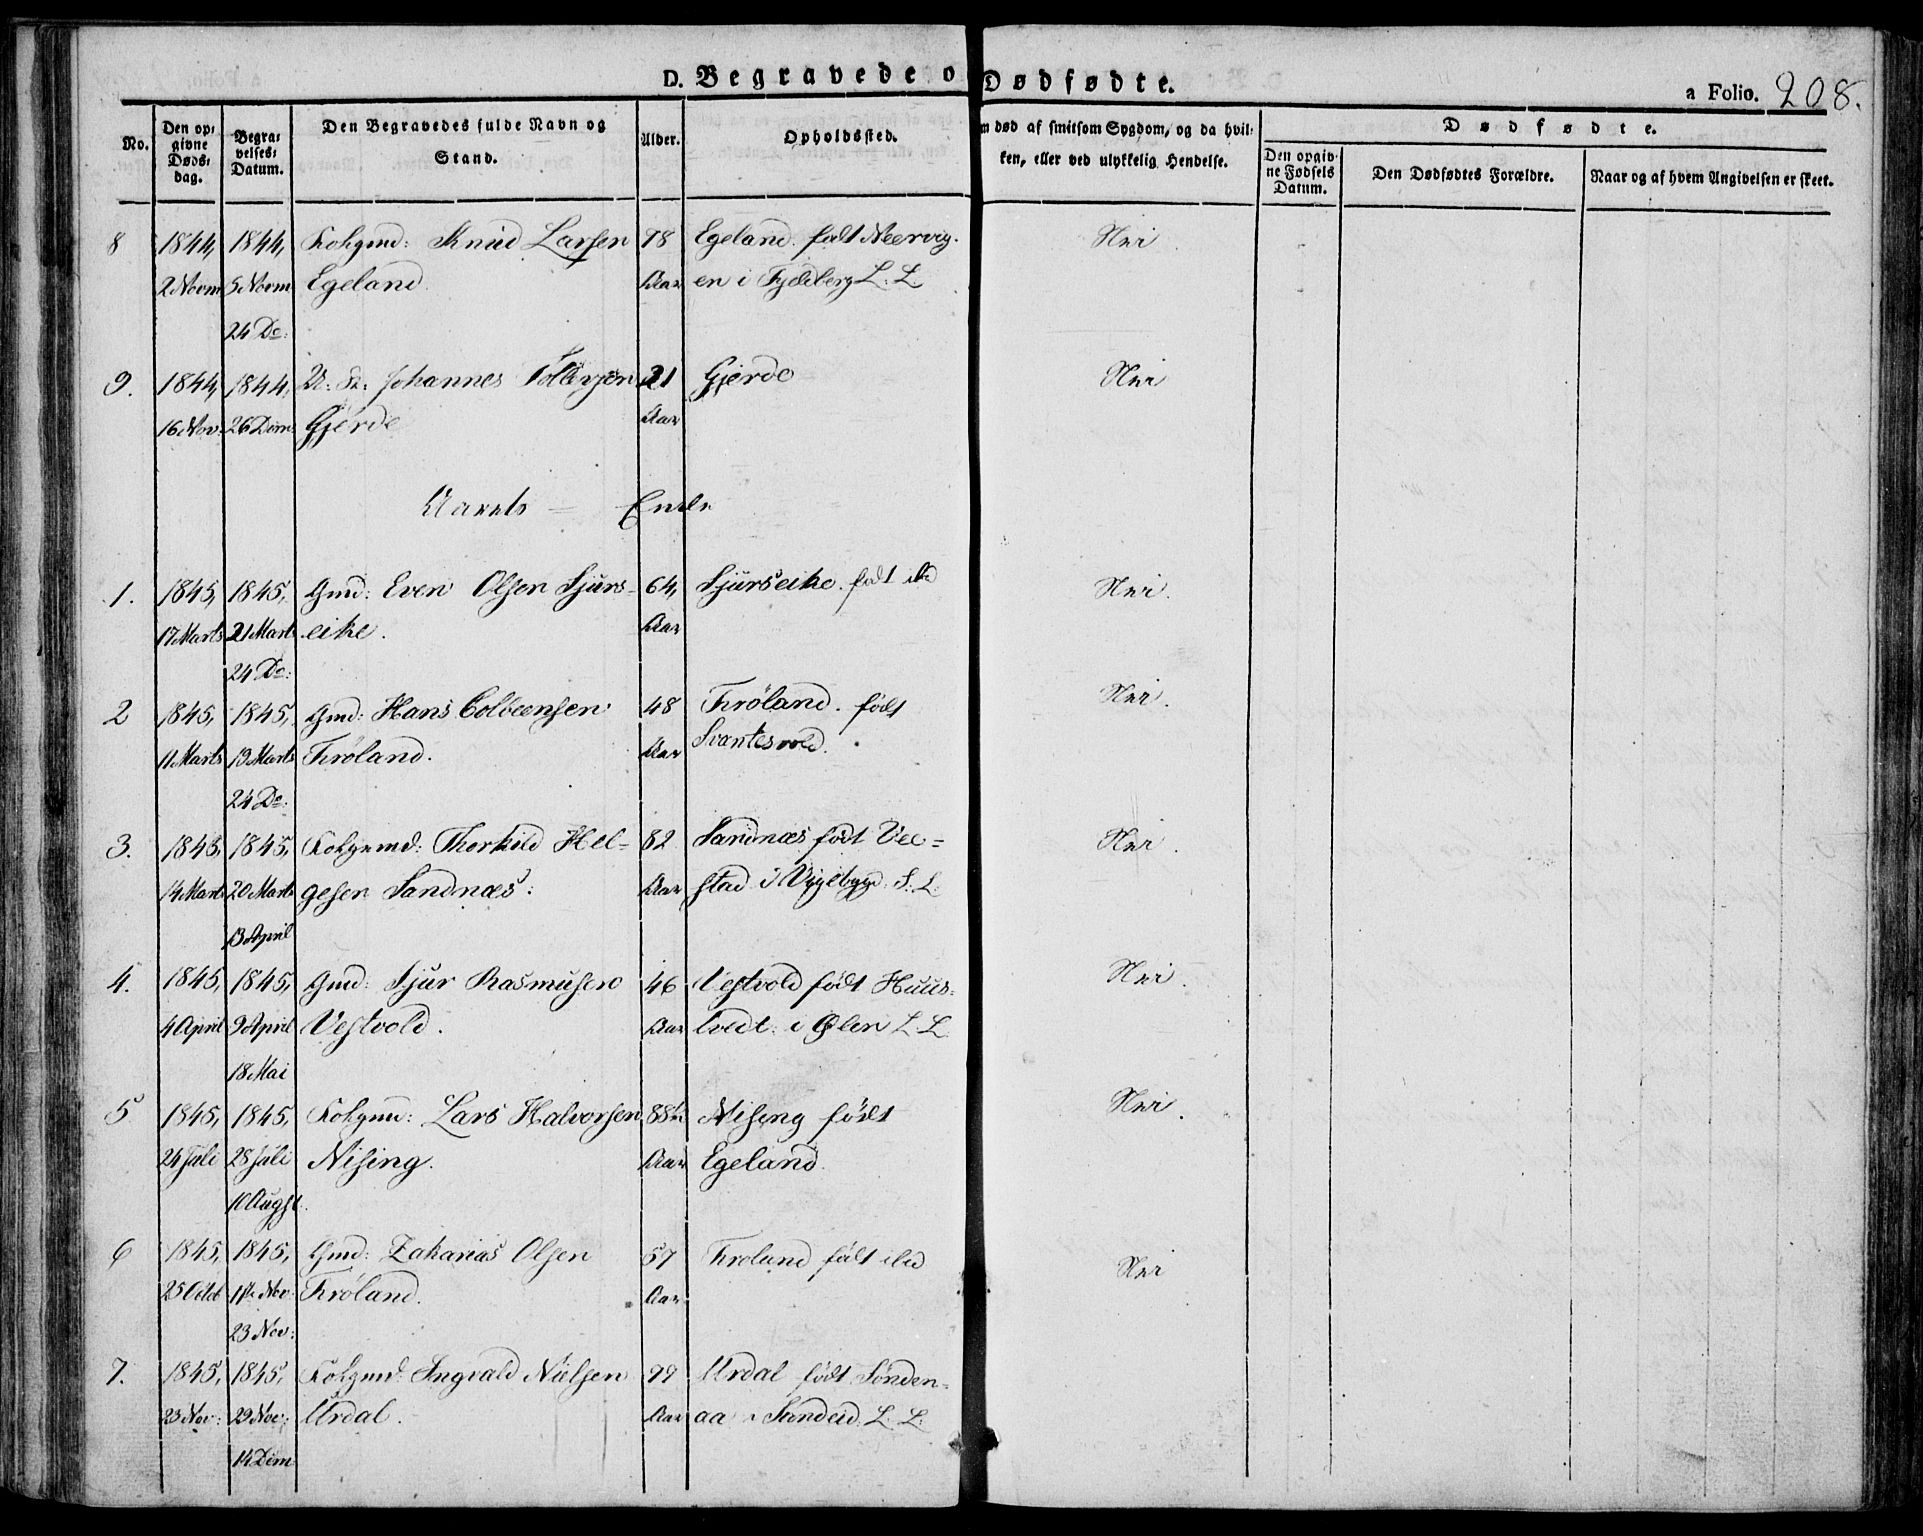 D. Begravede o Dødfødte.
a Folio. 208.
No.
Den op-
givne
Døds-
dag.
Begra-
velses-
Datum.
Den Begravedes fulde Navn og
Stand.
Alder.
Opholdssted.
m død af smitsom Sygdom, og da hvil-
ken, eller ved ulykkelig Hendelse.
Dødfødte.
Den opgiv-
ne Fødsels
Datum.
Den Dødfødtes Forældre.
Naar og af hvem Angivelsen er skeet.
8 1844, 1844, Kohgmd: Knud Larsen 78 Egeland. født Neervig- Nei.
2 Novm 5 Novm Egeland. Aar en i Fjeldberg L. L.
24 Do:
9. 1844, 1844, U: Sr: Johannes Tollevsen 21 Gjerde Nei
16 Nov: 26 Decm Gjerde Aar
Aarets — Ende
1. 1845, 1845, Gmd: Even Olsen Sjurs- 64, Sjurseike. født ibd Nei.
17 Marts 21 Marts eike. Aar
24 Do:
2 1845, 1845, Gmd: Hans Colbeensen 48 Frøland. født Nei.
11 Marts 19 Marts Frøland. Aar Svantesvold.
24 Do:
3. 1845, 1845, Kohgmd: Thorkild Hel= 82 Sandnæs født Vee= Nei.
14 Marts 20 Marts gesen Sandnæs: Aar stad i Vigebygd. S: L:
13 April
4. 1845, 1845, Gmd: Sjur Rasmusen 46 Vestvold født Huus- Nei.
4 April 9 April Vestvold. Aar tvedt: i Ølen L L
18 Mai
5 1845, 1845, Kohgmd: Lars Halvorsen 88½ Nising født Nei.
24 Juli 28 Juli Nising. Aar Egeland.
10 Augst.
6 1845, 1845, Gmd: Zakarias Olsen 57 Frøland født ibd Nei
25 Octob 1ste Nov: Frøland. Aar
23 Nov:
7. 1845, 1845, Kohgmd: Ingvald Nielsen 79 Urdal født Sønden-
23 Nov: 29 Nov: Urdal. Aar aa i Sandeid. L. L.
14 Decm